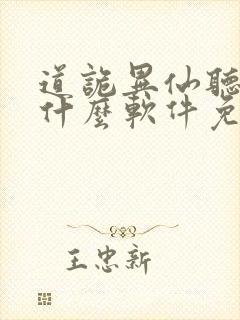 道詭異仙聽
什麼軟件免
王忠新